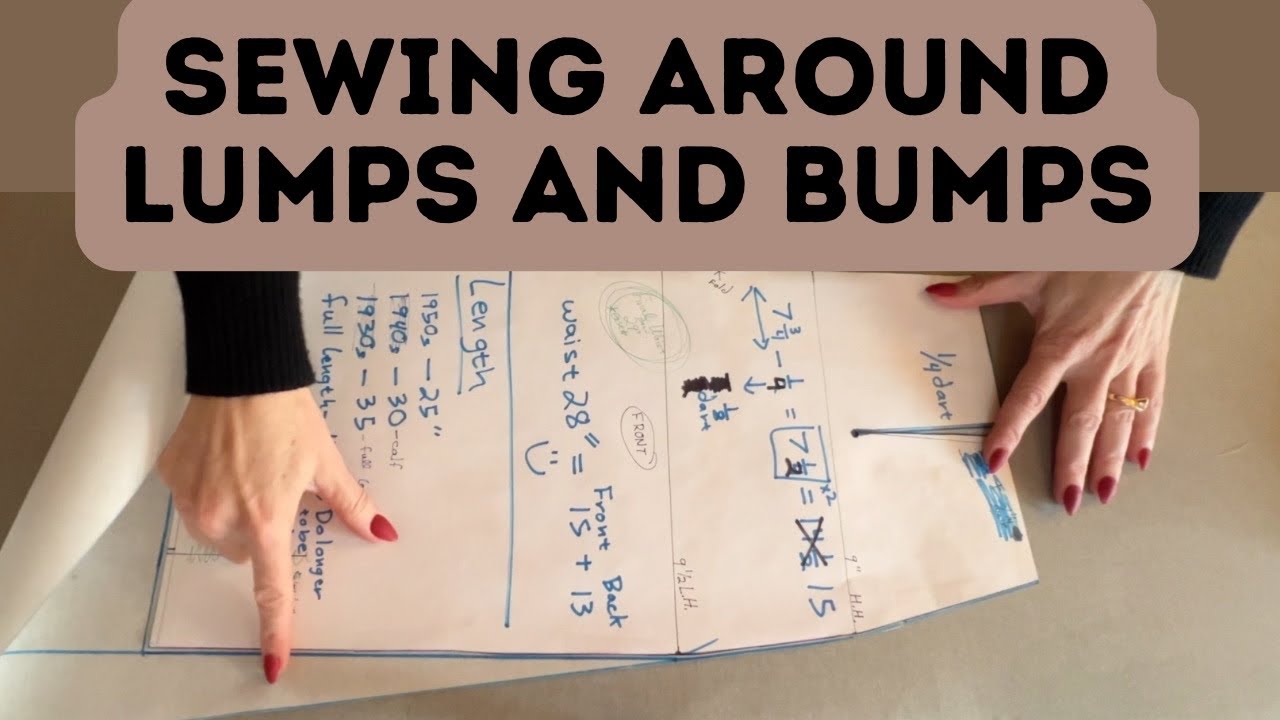 SEWING AROUND
LUMPS AND BUMPS
Length
1950s - 25"
1940s - 30 - calf
1930s - 35 - full
full length
Do longer
to be
waist 28" = 15 + 13
Front Back
FRONT
fold
7 3/4 - 1/4 = 7 1/2 x2 = 15
1/8
dart
9 1/2 L.H.
9" H.H.
1/4 dart